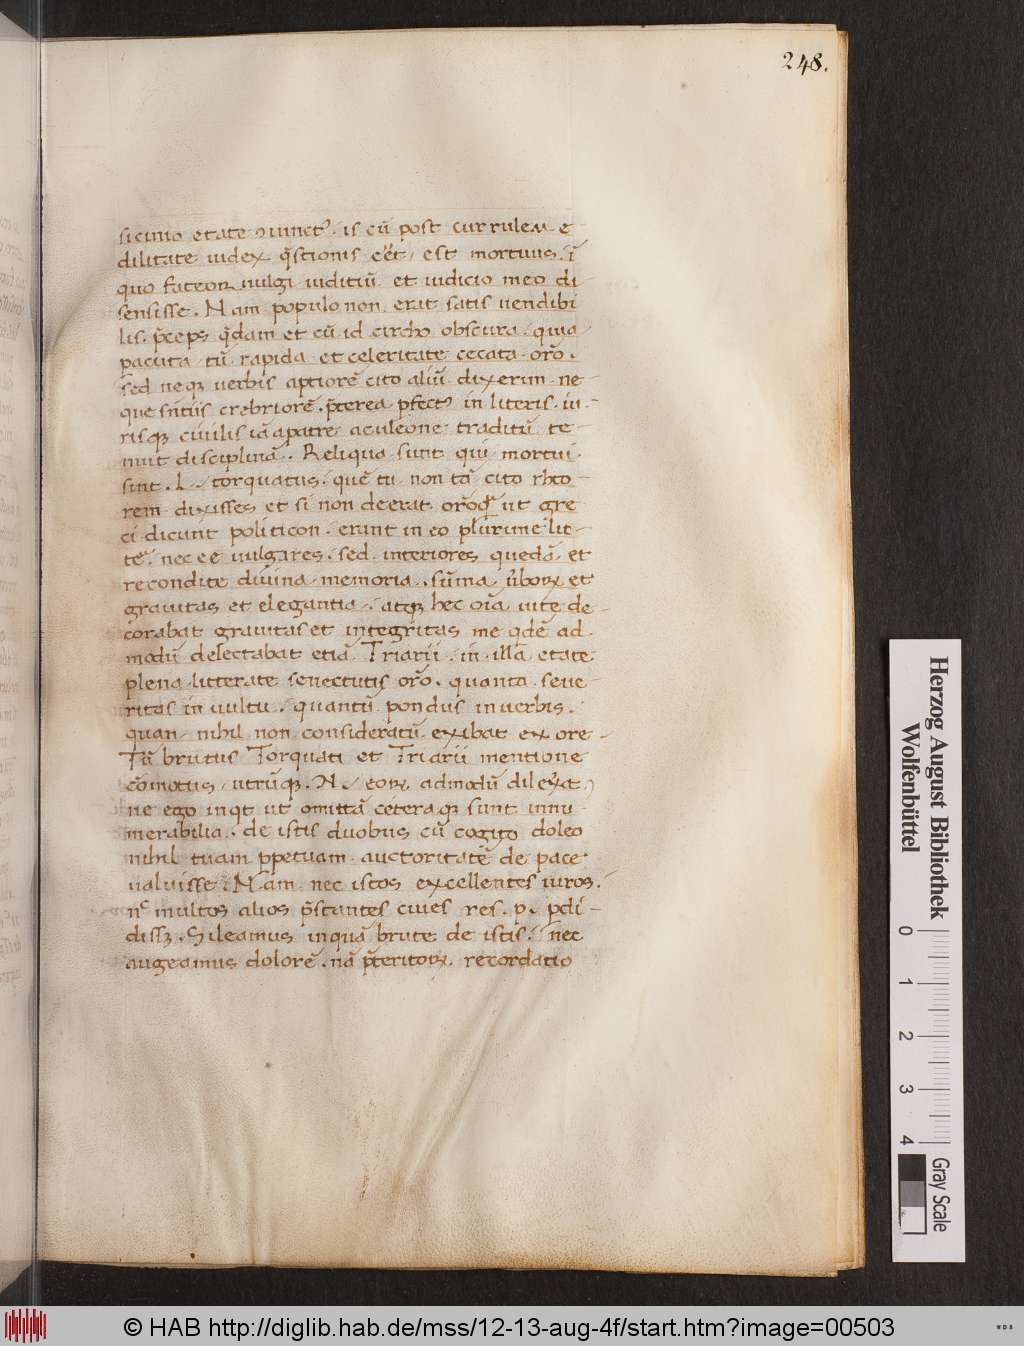 248.
sicinio etate ꝯiunctꝰ. is cū post currulem e
dilitate iudex q̄stionis eēt, est mortuus. ī
quo fateor uulgi iuditiū et iudicio meo di
sensisse. Nam populo non erat satis uendibi
lis. p̄ceps q̄dam et cū id circho obscura. quia
pacuta tū rapida et celeritate cecata orō.
sed neqꝫ uerbis aptiorē cito aliū dixerim ne
que sn̄tiis crebriorē. p̄terea pfectꝰ in literis. iu
risqꝫ ciuilis iā apatre aculeone traditū te
nuit disciplinā. Reliqua sunt qui mortui
sint. L. torquatus. quē tu non tā cito rheto
rem dixisses et si non deerat orō ut gre
ci dicunt politicon. erant in eo plurime lit
tē. nec eē uulgares. sed interiores quedā et
recondite diuina memoria. sūma ūborꝝ et
grauitas et elegantia. atqꝫ hec oīa uite de
corabat grauitas et integritas me qdē ad
modū delectabat etiā Triarii in illā etate
plena litterate senectutis orō. quanta seue
ritas in uultu. quantū pondus in uerbis.
quan nihil non consideratū exibat ex ore
Tū brutus Torquati et Triarii mentione
cōmotus, utrūqꝫ. N. eorꝝ admodū dilexit
ne ego inqt ut omittā cetera qꝫ sunt innu
merabilia. de istis duobus cū cogito doleo
nihil tuam ppetuam auctoritatē de pace
ualuisse. Nam nec istos excellentes iuros.
nᶜ multos alios p̄stantes ciues res. p. pdi
dissꝫ. Sileamus inquā brute de istis. nec
augeamus dolorē. nā p̄teritorꝝ recordatio
Herzog August Bibliothek
Wolfenbüttel
0 1 2 3 4
Gray Scale
© HAB http://diglib.hab.de/mss/12-13-aug-4f/start.htm?image=00503